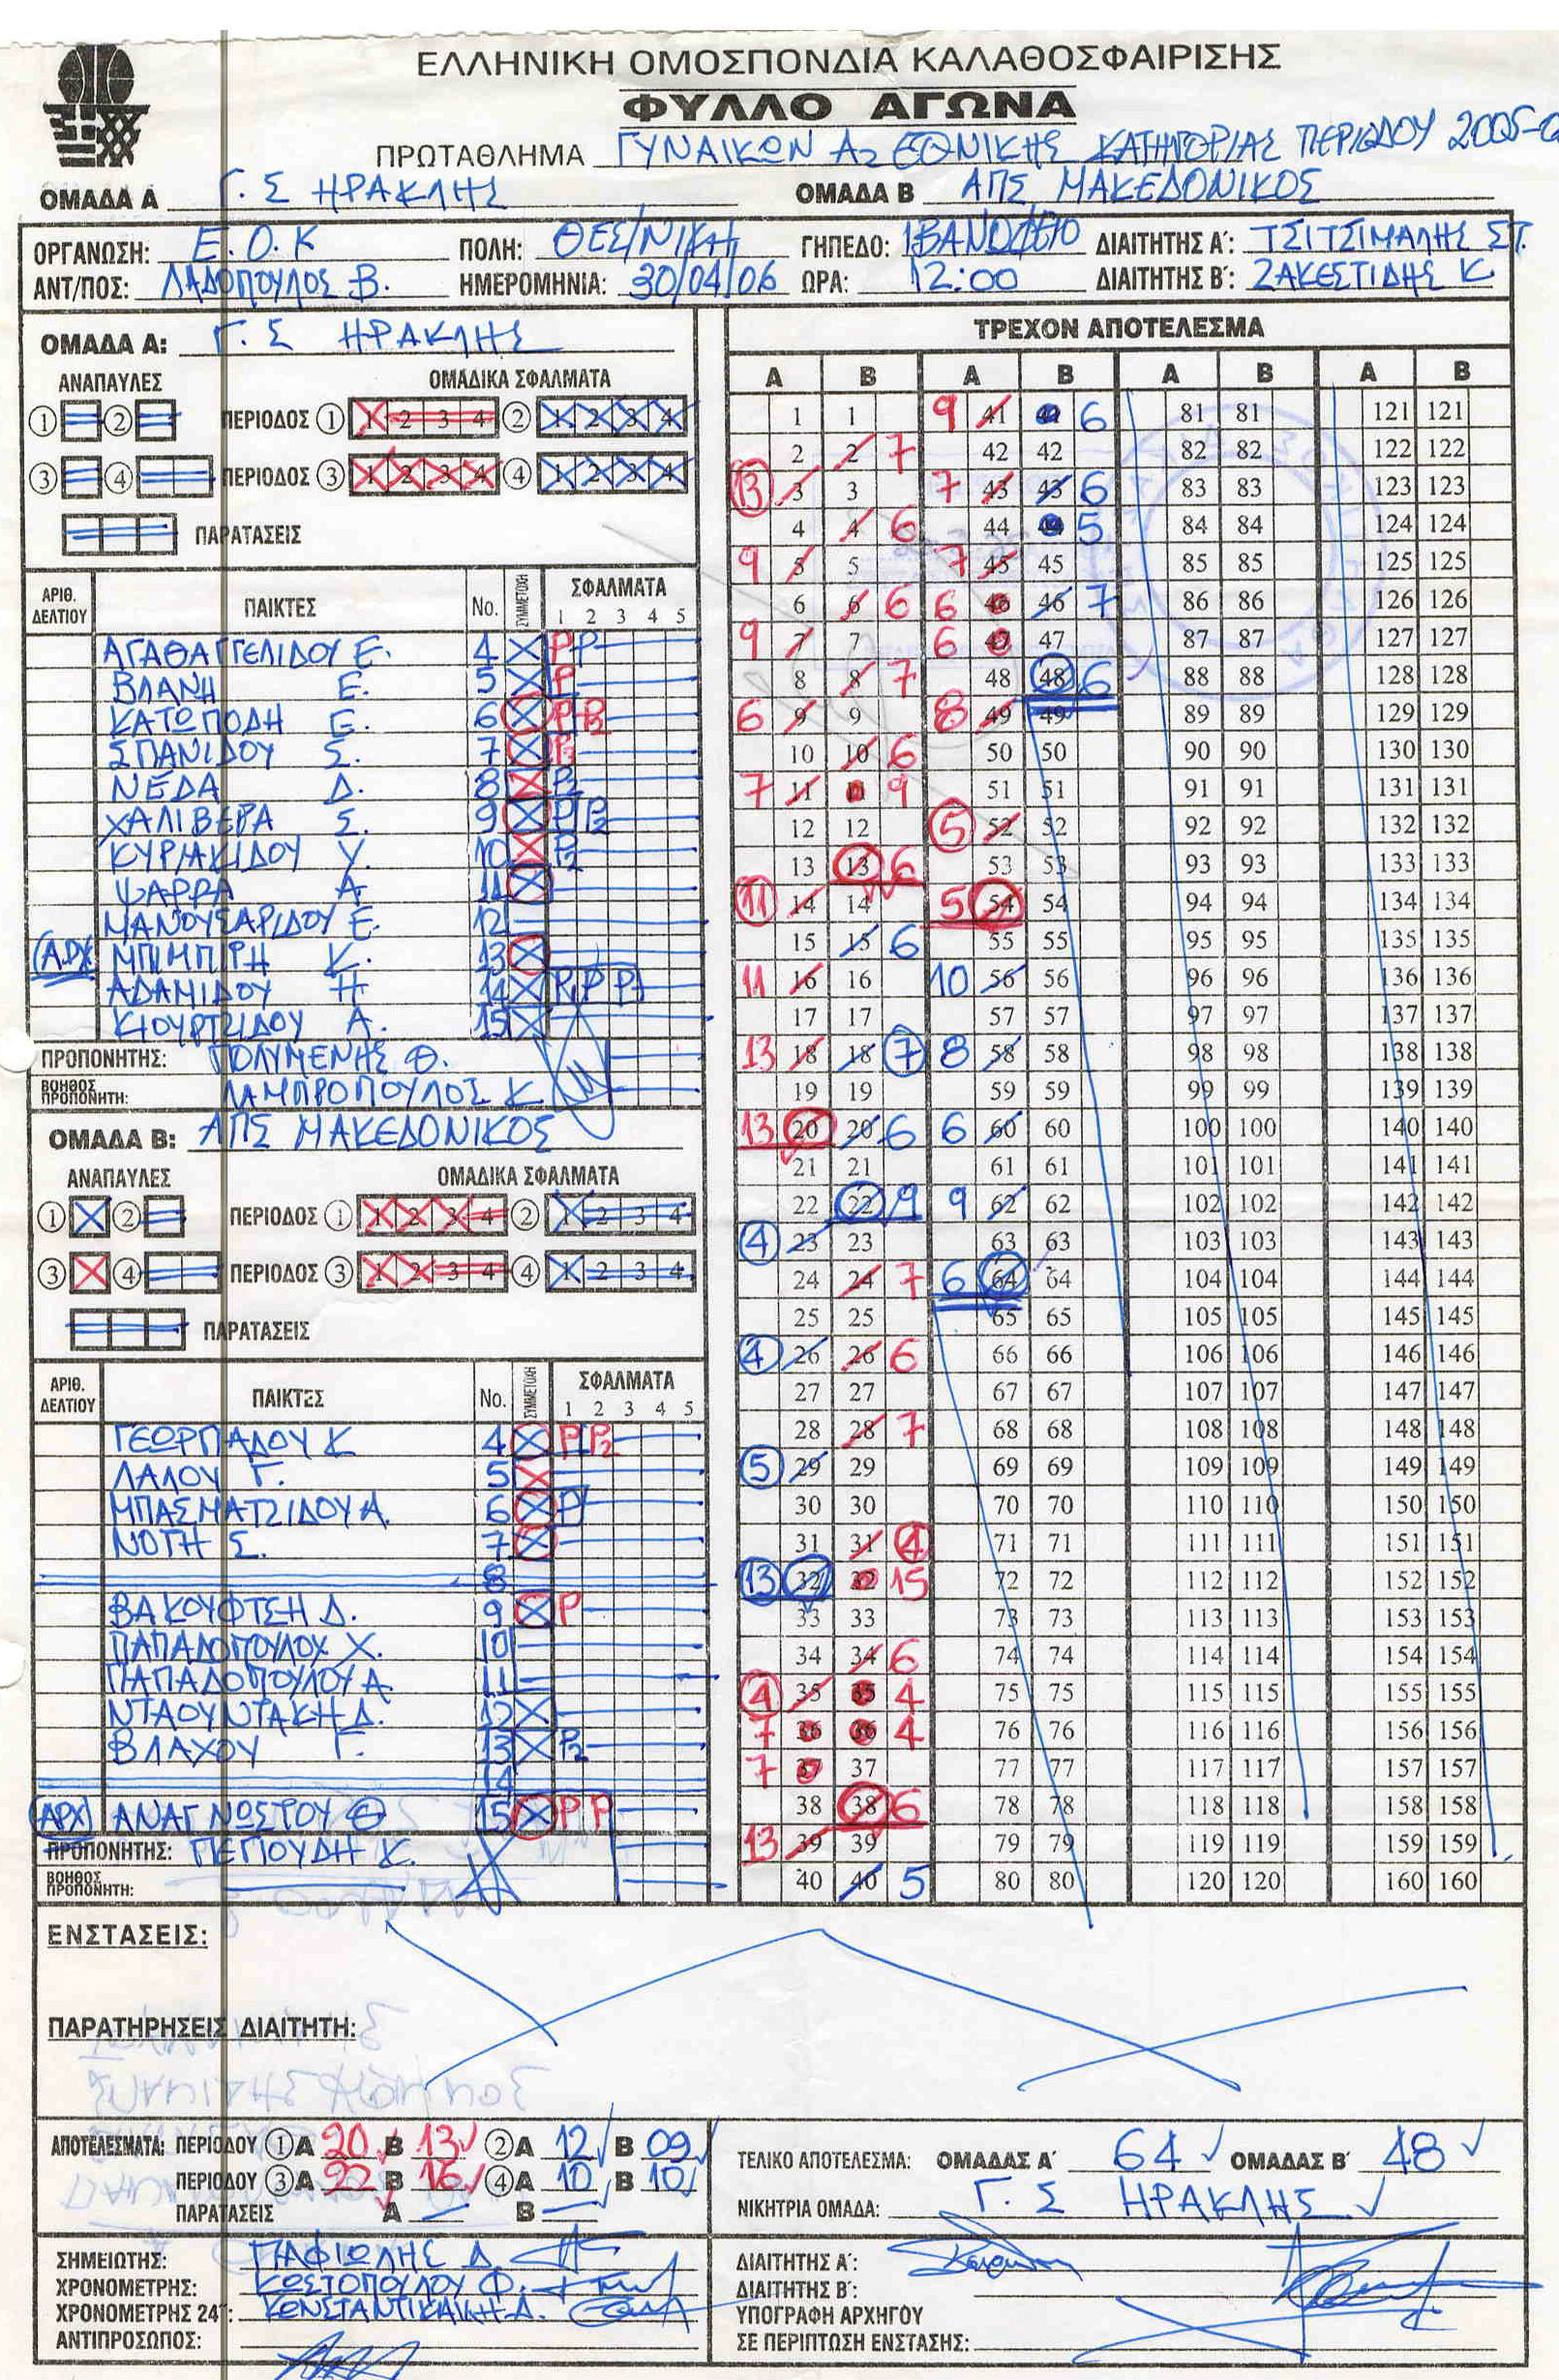 ΕΛΛΗΝΙΚΗ ΟΜΟΣΠΟΝΔΙΑ ΚΑΛΑΘΟΣΦΑΙΡΙΣΗΣ
ΦΥΛΛΟ ΑΓΩΝΑ
ΠΡΩΤΑΘΛΗΜΑ ΓΥΝΑΙΚΩΝ Α2 ΕΘΝΙΚΗΣ ΚΑΤΗΓΟΡΙΑΣ ΠΕΡΙΟΔΟΥ 2005-0
ΟΜΑΔΑ Α Γ.Σ ΗΡΑΚΛΗΣ ΟΜΑΔΑ Β ΑΠΣ ΜΑΚΕΔΟΝΙΚΟΣ
ΟΡΓΑΝΩΣΗ: Ε.Ο.Κ ΠΟΛΗ: ΘΕΣ/ΝΙΚΗ ΓΗΠΕΔΟ: ΙΒΑΝΩΦΕΙΟ ΔΙΑΙΤΗΤΗΣ Α': ΤΣΙΤΣΙΜΑΛΗΣ ΣΤ.
ΑΝΤ/ΠΟΣ: ΛΑΔΟΠΟΥΛΟΣ Β. ΗΜΕΡΟΜΗΝΙΑ: 30/04/06 ΩΡΑ: 12:00 ΔΙΑΙΤΗΤΗΣ Β': ΖΑΚΕΣΤΙΔΗΣ Κ
ΟΜΑΔΑ Α: Γ.Σ ΗΡΑΚΛΗΣ
ΑΝΑΠΑΥΛΕΣ ΟΜΑΔΙΚΑ ΣΦΑΛΜΑΤΑ
1 2 ΠΕΡΙΟΔΟΣ 1 1 2 3 4 2 1 2 3 4
3 4 ΠΕΡΙΟΔΟΣ 3 1 2 3 4 4 1 2 3 4
ΠΑΡΑΤΑΣΕΙΣ
ΑΡΙΘ. ΔΕΛΤΙΟΥ ΠΑΙΚΤΕΣ No. ΣΥΜΜΕΤΟΧΗ ΣΦΑΛΜΑΤΑ 1 2 3 4 5
ΑΓΑΘΑΓΓΕΛΙΔΟΥ Ε. 4 P P
ΒΛΑΝΗ Ε. 5 P
ΚΑΤΩΠΟΔΗ Ε. 6 P P2
ΣΠΑΝΙΔΟΥ Σ. 7 P2
ΝΕΔΑ Δ. 8 P2
ΧΑΛΙΒΕΡΑ Σ. 9 P P2
ΚΥΡΙΑΚΙΔΟΥ Υ. 10 P2
ΨΑΡΡΑ Α 11
ΜΑΝΟΥΣΑΡΙΔΟΥ Ε. 12
(ΑΡΧ) ΜΠΙΜΠΙΡΗ Κ. 13
ΑΔΑΜΙΔΟΥ Η 14 P P P
ΚΙΟΥΡΤΖΙΔΟΥ Α. 15
ΠΡΟΠΟΝΗΤΗΣ: ΠΟΛΥΜΕΝΗΣ Θ.
ΒΟΗΘΟΣ ΠΡΟΠΟΝΗΤΗ: ΛΑΜΠΡΟΠΟΥΛΟΣ Κ
ΟΜΑΔΑ Β: ΑΠΣ ΜΑΚΕΔΟΝΙΚΟΣ
ΑΝΑΠΑΥΛΕΣ ΟΜΑΔΙΚΑ ΣΦΑΛΜΑΤΑ
1 2 ΠΕΡΙΟΔΟΣ 1 1 2 3 4 2 1 2 3 4
3 4 ΠΕΡΙΟΔΟΣ 3 1 2 3 4 4 1 2 3 4
ΠΑΡΑΤΑΣΕΙΣ
ΑΡΙΘ. ΔΕΛΤΙΟΥ ΠΑΙΚΤΕΣ No. ΣΥΜΜΕΤΟΧΗ ΣΦΑΛΜΑΤΑ 1 2 3 4 5
ΓΕΩΡΓΙΑΔΟΥ Κ 4 P P2
ΛΑΛΟΥ Γ. 5
ΜΠΑΣΜΑΤΖΙΔΟΥ Α. 6 P
ΝΟΤΗ Σ. 7
8
ΒΑΚΟΥΦΤΣΗ Δ. 9 P
ΠΑΠΑΔΟΠΟΥΛΟΥ Χ. 10
ΠΑΠΑΔΟΠΟΥΛΟΥ Α. 11
ΝΤΑΟΥΝΤΑΚΗ Δ. 12
ΒΛΑΧΟΥ Γ. 13 P2
14
(ΑΡΧ) ΑΝΑΓΝΩΣΤΟΥ Θ 15 P P
ΠΡΟΠΟΝΗΤΗΣ: ΠΕΓΙΟΥΔΗ Χ.
ΒΟΗΘΟΣ ΠΡΟΠΟΝΗΤΗ:
ΤΡΕΧΟΝ ΑΠΟΤΕΛΕΣΜΑ
Α Β Α Β Α Β Α Β
1 1 9 41 41 6 81 81 121 121
2 2 7 42 42 82 82 122 122
13 3 3 7 43 43 6 83 83 123 123
4 4 6 44 44 5 84 84 124 124
9 5 5 7 45 45 85 85 125 125
6 6 6 6 46 46 7 86 86 126 126
9 7 7 6 47 47 87 87 127 127
8 8 7 48 48 6 88 88 128 128
6 9 9 8 49 49 89 89 129 129
10 10 6 50 50 90 90 130 130
7 11 11 9 51 51 91 91 131 131
12 12 5 52 52 92 92 132 132
13 13 6 53 53 93 93 133 133
11 14 14 5 54 54 94 94 134 134
15 15 6 55 55 95 95 135 135
11 16 16 10 56 56 96 96 136 136
17 17 57 57 97 97 137 137
13 18 18 7 8 58 58 98 98 138 138
19 19 59 59 99 99 139 139
13 20 20 6 6 60 60 100 100 140 140
21 21 61 61 101 101 141 141
22 22 9 9 62 62 102 102 142 142
4 23 23 63 63 103 103 143 143
24 24 7 6 64 64 104 104 144 144
25 25 65 65 105 105 145 145
4 26 26 6 66 66 106 106 146 146
27 27 67 67 107 107 147 147
28 28 7 68 68 108 108 148 148
5 29 29 69 69 109 109 149 149
30 30 70 70 110 110 150 150
31 31 4 71 71 111 111 151 151
13 32 32 15 72 72 112 112 152 152
33 33 73 73 113 113 153 153
34 34 6 74 74 114 114 154 154
4 35 35 4 75 75 115 115 155 155
7 36 36 4 76 76 116 116 156 156
7 37 37 77 77 117 117 157 157
38 38 6 78 78 118 118 158 158
13 39 39 79 79 119 119 159 159
40 40 5 80 80 120 120 160 160
ΕΝΣΤΑΣΕΙΣ:
ΠΑΡΑΤΗΡΗΣΕΙΣ ΔΙΑΙΤΗΤΗ:
ΑΠΟΤΕΛΕΣΜΑΤΑ: ΠΕΡΙΟΔΟΥ 1 Α 20 Β 13 2 Α 12 Β 09
ΠΕΡΙΟΔΟΥ 3 Α 22 Β 16 4 Α 10 Β 10
ΠΑΡΑΤΑΣΕΙΣ Α — Β —
ΤΕΛΙΚΟ ΑΠΟΤΕΛΕΣΜΑ: ΟΜΑΔΑΣ Α' 64 ΟΜΑΔΑΣ Β' 48
ΝΙΚΗΤΡΙΑ ΟΜΑΔΑ: Γ.Σ ΗΡΑΚΛΗΣ
ΣΗΜΕΙΩΤΗΣ: ΠΑΦΙΩΛΗΣ Δ.
ΧΡΟΝΟΜΕΤΡΗΣ: ΚΩΣΤΟΠΟΥΛΟΥ Φ.
ΧΡΟΝΟΜΕΤΡΗΣ 24": ΚΩΝΣΤΑΝΤΙΚΑΚΗ Δ.
ΑΝΤΙΠΡΟΣΩΠΟΣ:
ΔΙΑΙΤΗΤΗΣ Α':
ΔΙΑΙΤΗΤΗΣ Β':
ΥΠΟΓΡΑΦΗ ΑΡΧΗΓΟΥ
ΣΕ ΠΕΡΙΠΤΩΣΗ ΕΝΣΤΑΣΗΣ: